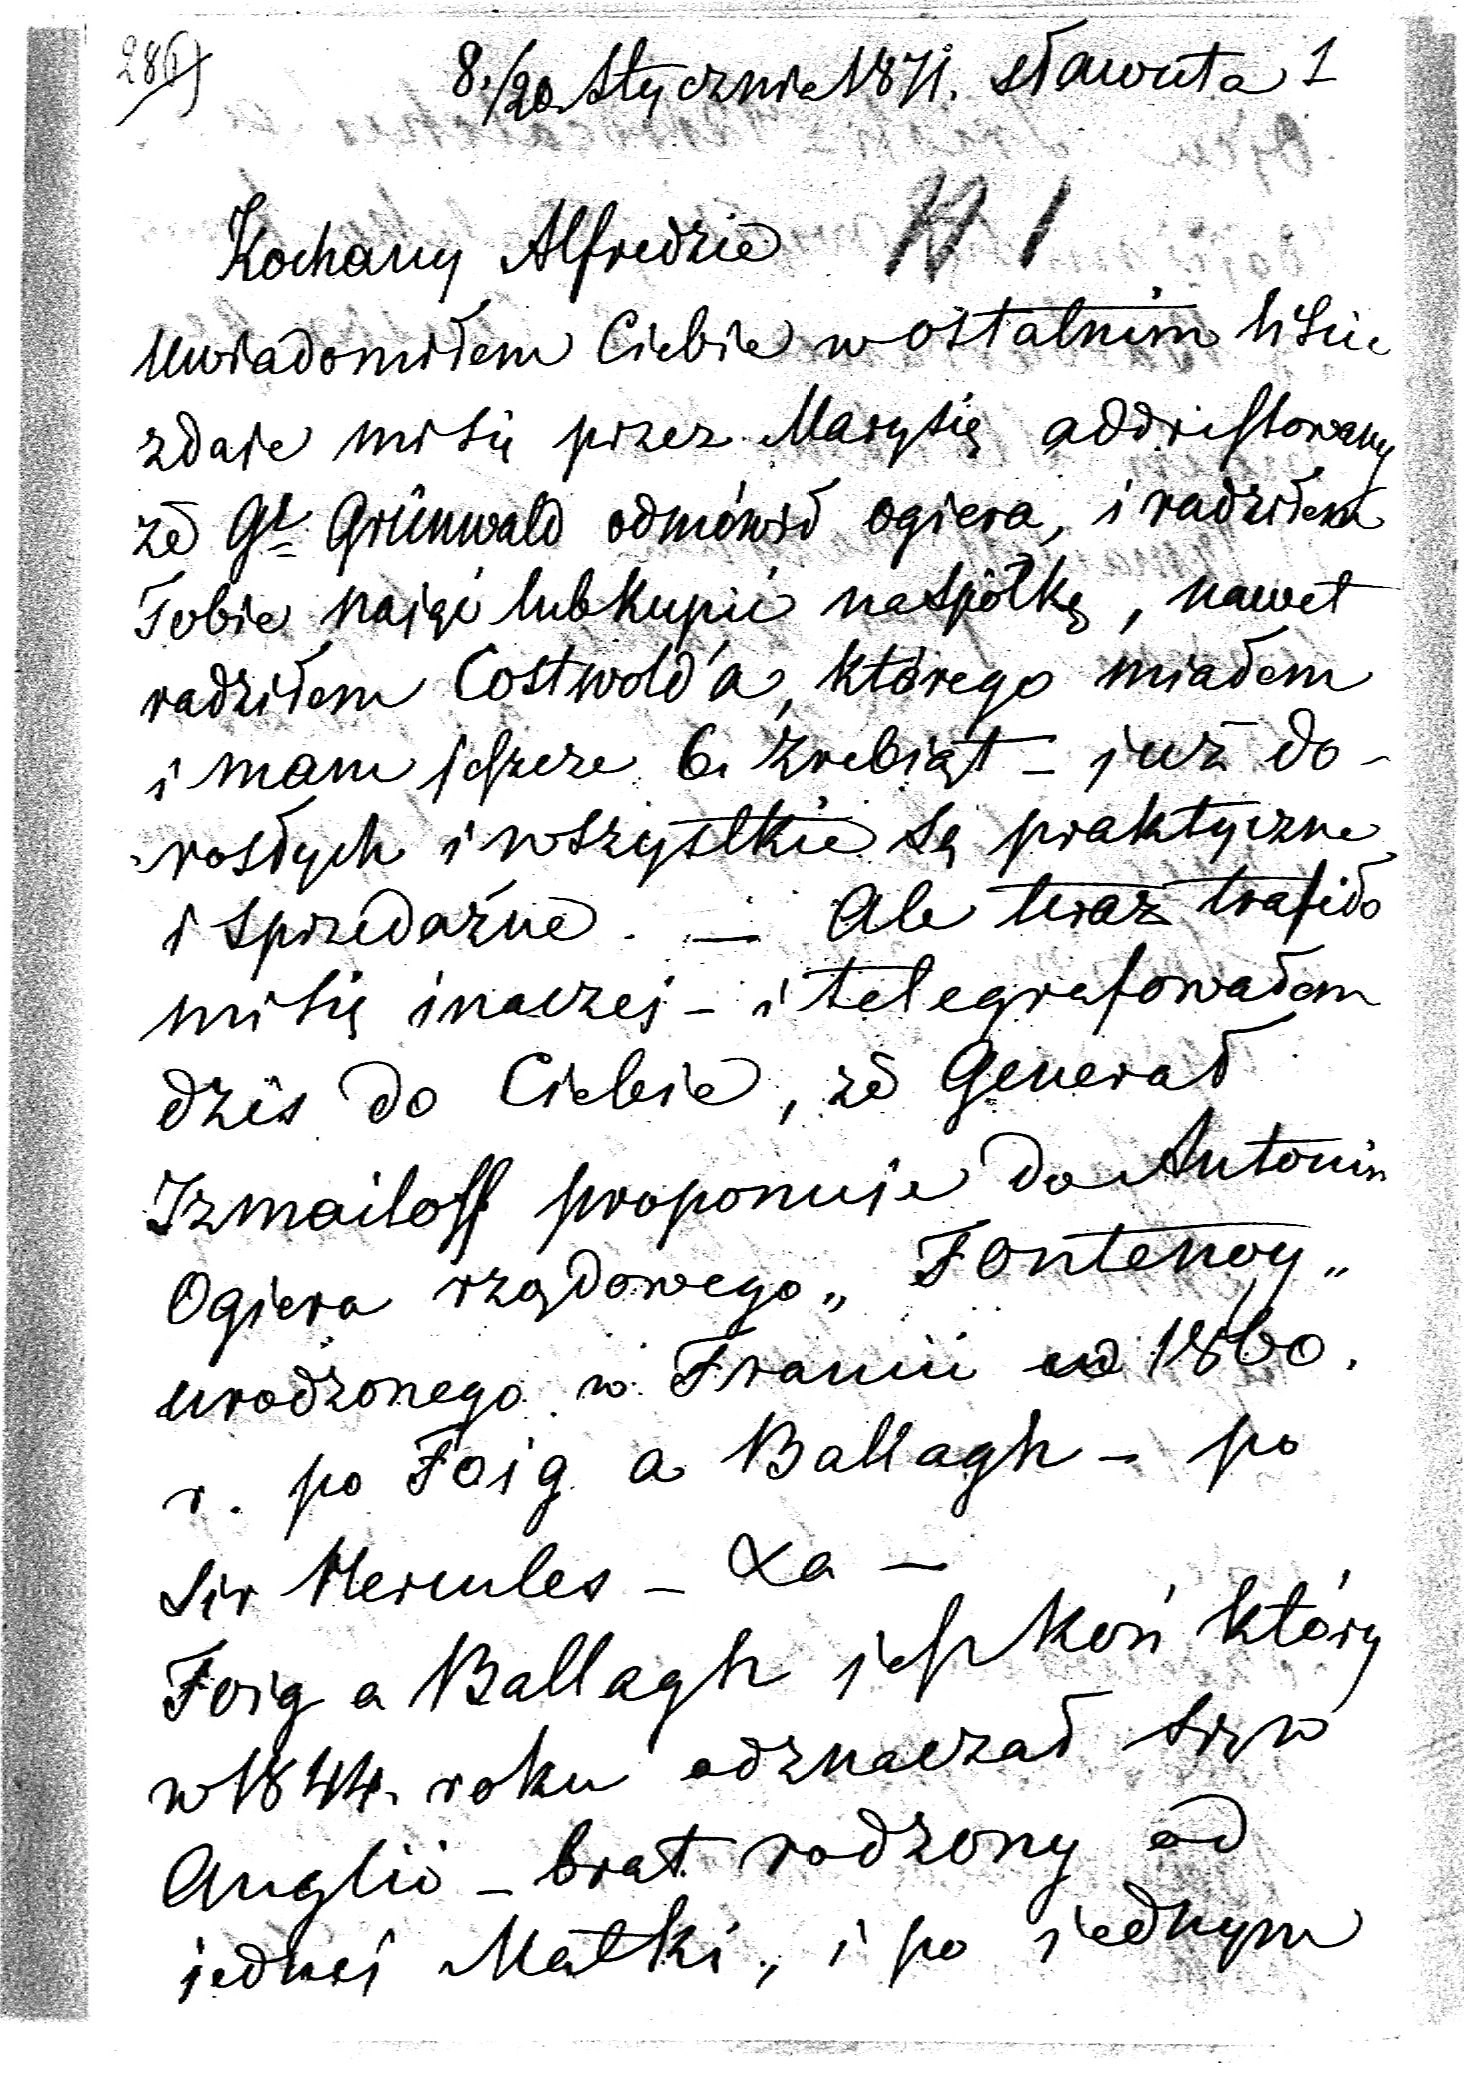 286)
8./20 Stycznia 1871. Sławuta 1
N 1
Kochany Alfredzie
Uwiadomiłem Ciebie w ostatnim liście
zdaie mi się przez Marysię addressowany
że Gł Grünwald odmówił ogiera, i radziłem
Tobie nająć lub kupić na spółkę, nawet
radziłem Costwold'a, którego miałem
i mam jeszcze 6. źrebiąt – już do-
rosłych i wszystkie są praktyczne
i sprzedażne. — Ale teraz trafiło
mi się inaczej – i telegrafowałem
dziś do Ciebie, że Generał
Izmailoff proponuje do Antonin
Ogiera rządowego „Fontenoy„
urodzonego w Francii od 1860.
r. po Foig a Ballagh – po
Sir Hercules – Xa –
Foig a Ballagh jest koń który
w 1844. roku odznaczał się w
Anglii – brat rodzony od
jednej Matki, i po jednym